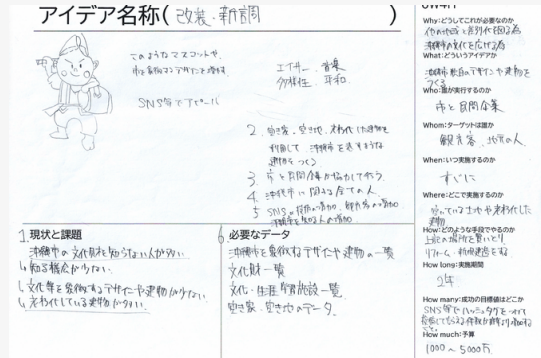 アイデア名称(改装・新調)
このようなマスコットや、
市を象徴するデザインを増やす
SNS等でアピール
エイサー、音楽
多様性、平和
2. 空き家、空き地、老朽化した建物を
利用して沖縄市を表すような
建物をつくる
3. 市と民間企業が協力して行う
4. 沖縄市に関する全ての人
5 SNSの投稿の増加、観光客の増加
沖縄市を知る人の増加
1.現状と課題
沖縄市の文化財を知らない人が多い
↳知る機会が少ない
↳文化等を象徴するデザインや建物が少ない
↳老朽化している建物が多い
6.必要なデータ
沖縄市を象徴するデザインや建物の一覧
文化財一覧
文化・生涯学習施設一覧
空き家・空き地のデータ
5W4H
Why:どうしてこれが必要なのか
他の地域と差別化を図る為
沖縄市の文化を広げる為
What:どういうアイデアか
沖縄市独自のデザインや建物を
つくる
Who:誰が実行するのか
市と民間企業
Whom:ターゲットは誰か
観光客、地元の人
When:いつ実施するのか
すぐに
Where:どこで実施するのか
空いている土地や老朽化した
建物
How:どのような手段でやるのか
上記の場所を買いとり
リフォーム・新規建設をする
How long:実施期間
2年
How many:成功の目標値はどこか
SNS等でハッシュタグをつけて
投稿してもらえる件数が前年より増加する
How much:予算
1000〜5000万